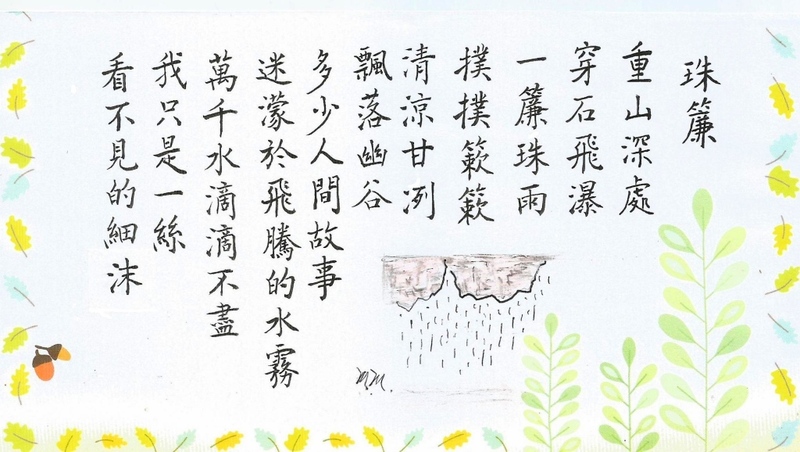 珠簾
重山深處
穿石飛瀑
一簾珠雨
撲撲簌簌
清涼甘冽
飄落幽谷
多少人間故事
迷濛於飛騰的水霧
萬千水滴滴不盡
我只是一絲
看不見的細沫